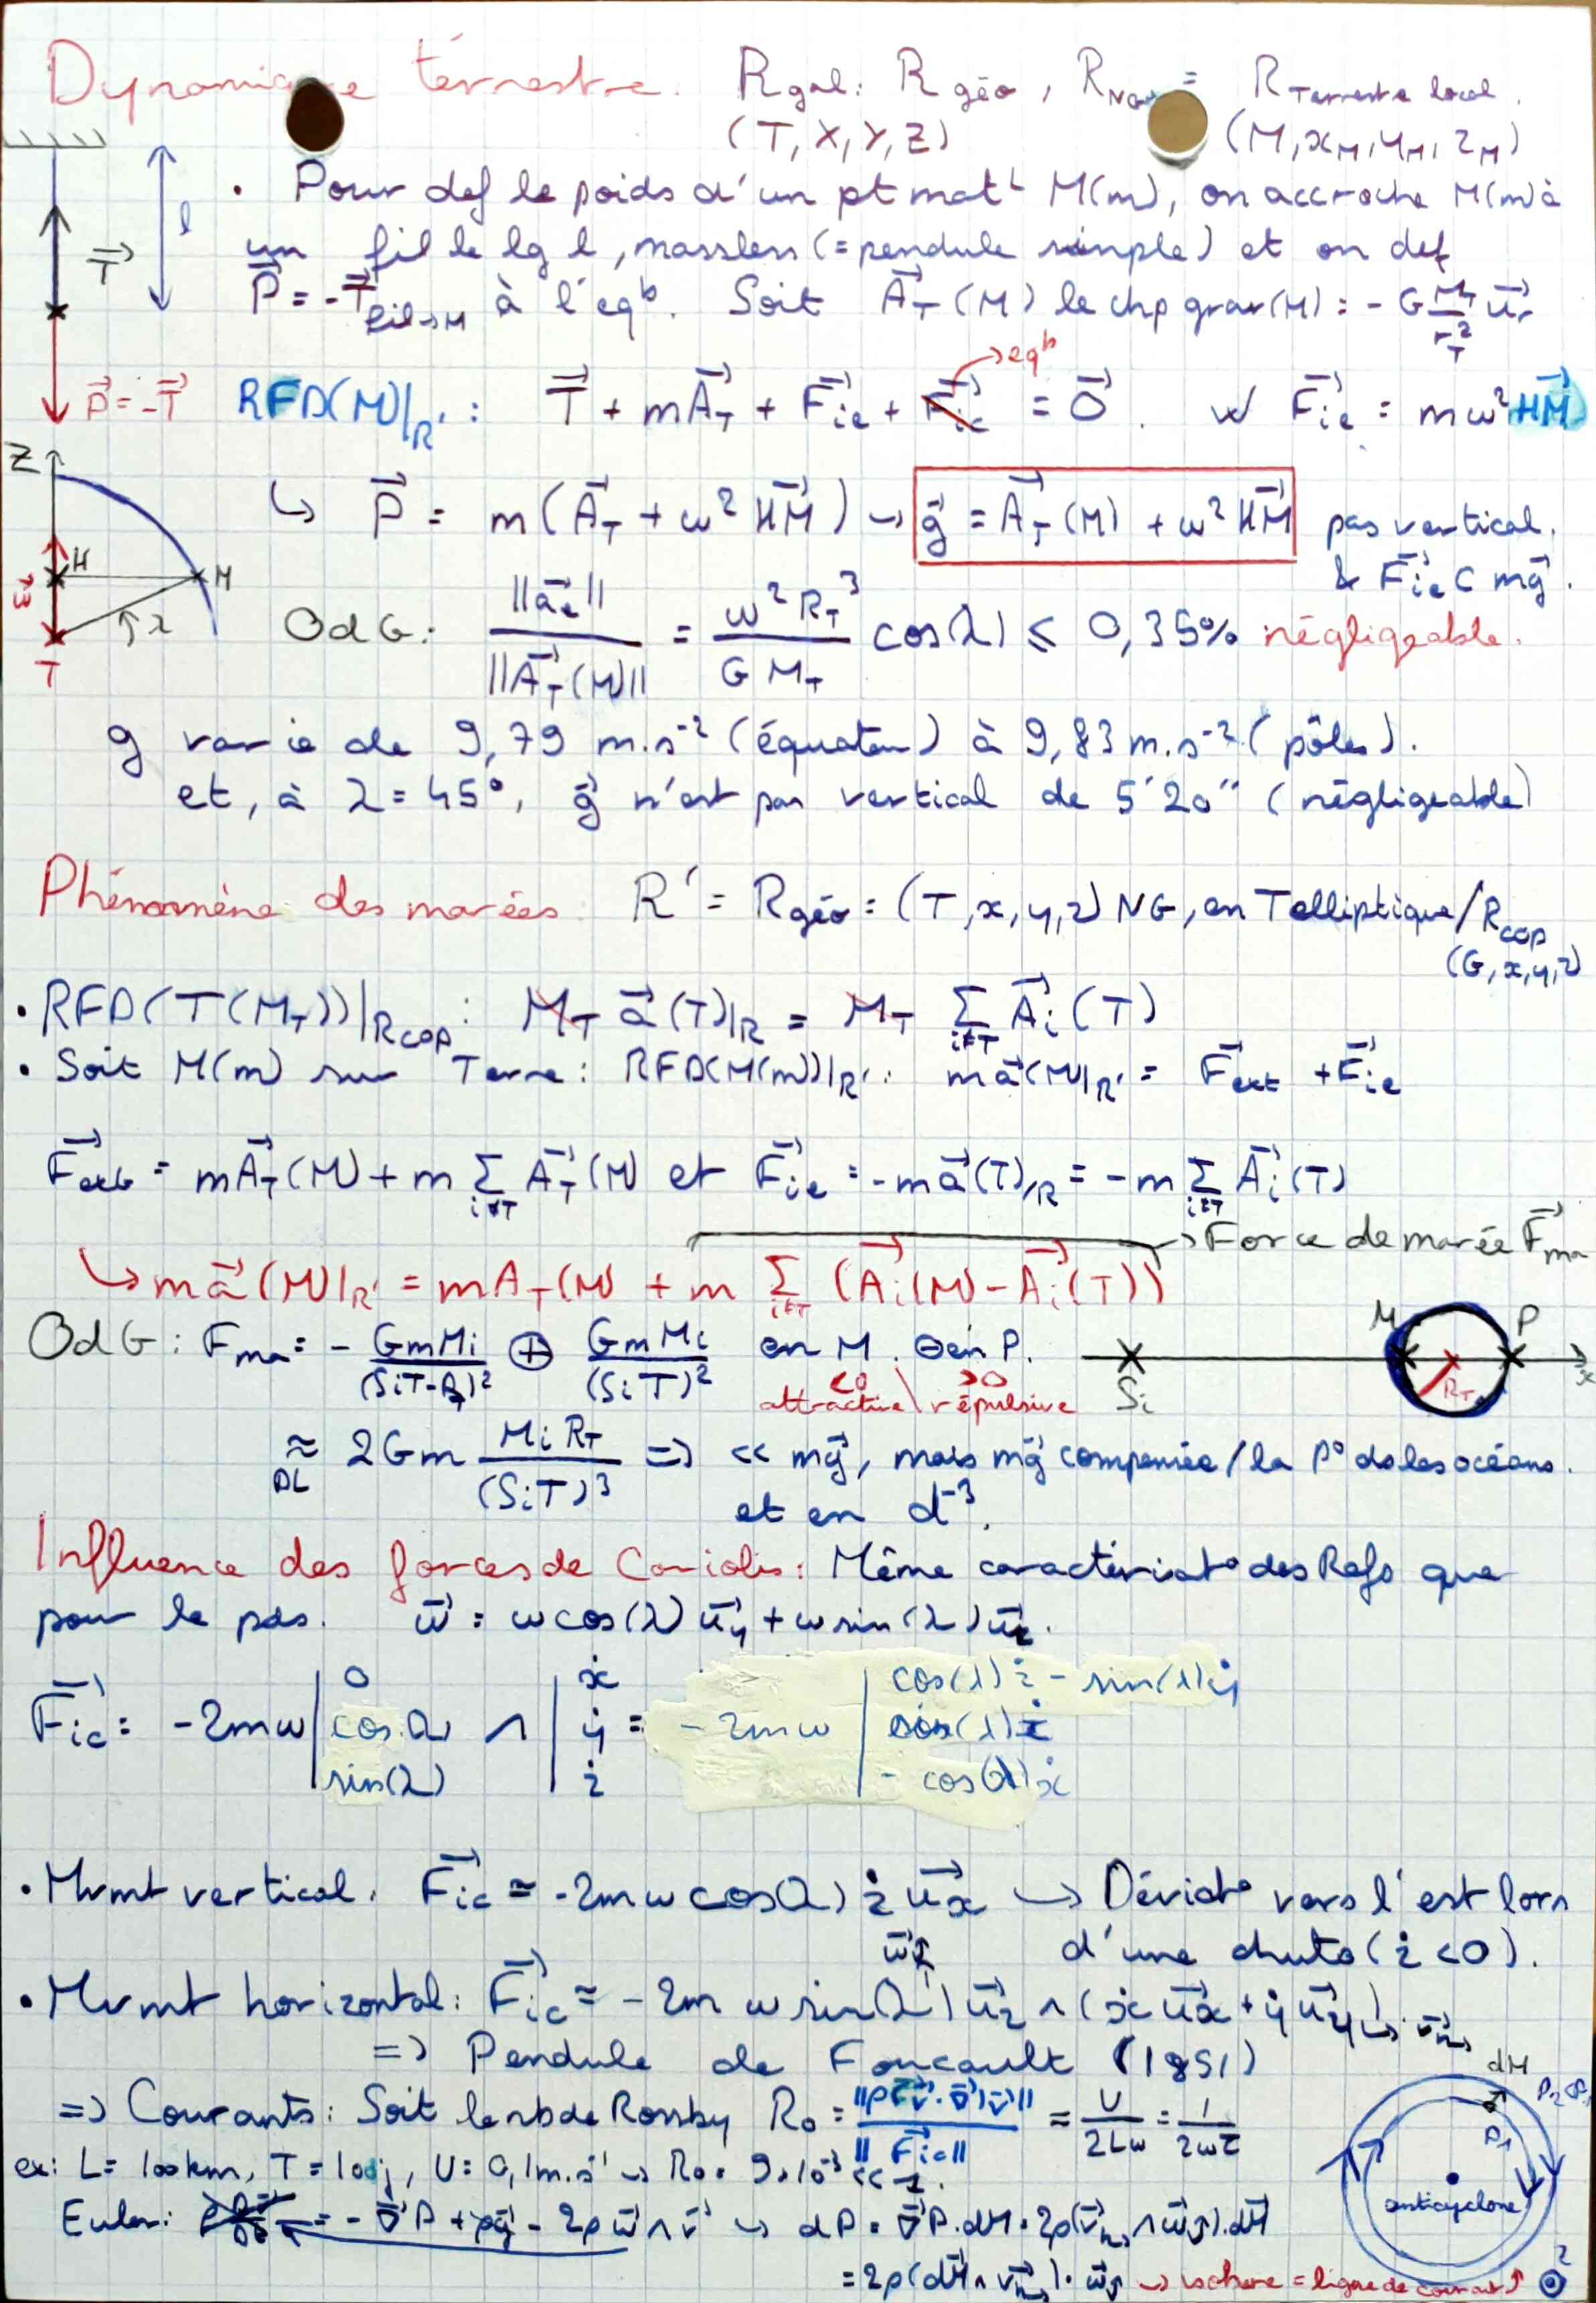 Dynamique térrestre. Rgal: Rgéo, RNG = RTerrestre local.
(T, X, Y, Z) (M, xM, yM, zM)
• Pour def le poids d'un pt matL M(m), on accroche M(m) à
un fil de lg l, massless (= pendule simple) et on def
P⃗ = -T⃗fil→M à l'eqb. Soit A⃗T(M) le chp grav(M) = -G MT/rT² u⃗r
l
T⃗
P⃗ = -T⃗
→ eqb
RFD(M)|R' : T⃗ + mA⃗T + F⃗ie + F⃗ic = 0⃗. w/ F⃗ie = mω² HM⃗
↳ P⃗ = m(A⃗T + ω² HM⃗) → g⃗ = A⃗T(M) + ω² HM⃗ pas vertical.
& F⃗ie ⊂ mg⃗.
Z H M ω⃗ λ T
OdG: ||a⃗e|| / ||A⃗T(M)|| = ω² RT³ / G MT cos(λ) ≤ 0,35% négligeable.
g varie de 9,79 m.s⁻² (équateur) à 9,83 m.s⁻² (pôles).
et, à λ = 45°, g⃗ n'est pas vertical de 5'20'' (négligeable)
Phénomène des marées R' = Rgéo = (T, x, y, z) NG, en T elliptique / Rcop
(G, x, y, z)
• RFD(T(MT))|Rcop: MT a⃗(T)|R = MT Σi≠T A⃗i(T)
• Soit M(m) sur Terre: RFD(M(m))|R': ma⃗(M)|R' = F⃗ext + F⃗ie
F⃗ext = mA⃗T(M) + m Σi≠T A⃗T(M) et F⃗ie = -ma⃗(T)/R = -m Σi≠T A⃗i(T)
→ Force de marée F⃗ma
↳ ma⃗(M)|R' = mAT(M) + m Σi≠T (A⃗i(M) - A⃗i(T))
OdG: Fma = - GmMi/(SiT-RT)² ⊕ GmMi/(SiT)² en M. ⊖ en P.
<0 attractive \ >0 répulsive
Si M P RT x
≈DL 2Gm Mi RT/(SiT)³ => << mg⃗, mais mg⃗ compensée / la P° ds les océans.
et en d⁻³.
Influence des forces de Coriolis: Même caractérisat° des Refs que
pour le pds. ω⃗ = ω cos(λ) u⃗y + ω sin(λ) u⃗z.
F⃗ic = -2mω | 0 cos(λ) sin(λ) ∧ | ẋ ẏ ż = -2mω | cos(λ)ż - sin(λ)ẏ sin(λ)ẋ - cos(λ)ẋ
• Mvmt vertical. F⃗ic ≈ -2mω cos(λ) ż u⃗x → Déviat° vers l'est lors
d'une chute (ż<0).
ω⃗↑
• Mvmt horizontal: F⃗ic ≈ -2m ω sin(λ) u⃗z ∧ (ẋ u⃗x + ẏ u⃗y) ↳ v⃗h→
=> Pendule de Foucault (1851)
=> Courants: Soit le nb de Rossby Ro = ||ρ(v⃗.∇⃗)v⃗|| / ||F⃗ic|| = U/2Lω = 1/2ωτ
ex: L = 100km, T = 100j, U = 0,1m.s⁻¹ → Ro = 9.10⁻³ << 1.
Euler: = -∇⃗P + ρg⃗ - 2ρ ω⃗∧v⃗ → dP = ∇⃗P.dM = 2ρ(v⃗h→ ∧ ω⃗↑).dM⃗
= 2ρ(dM⃗ ∧ v⃗h→).ω⃗↑ → isobare = ligne de courant ↑
dM P2 P1
anticyclone
z